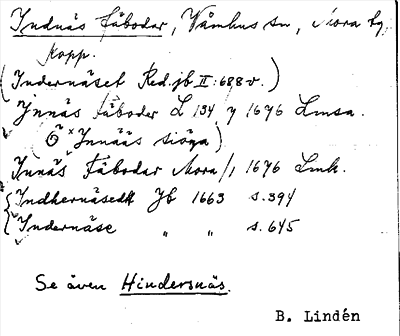 Indnäs fäbodar, Våmhus sn, Mora tg,
Kopp.
(Indernäset Red.jb II:688v.)
Innäs fäboder L 134 y 1676 Lmsa.
(Ö Innääs siöga)
Innäs Fäbodar Mora/1 1676 Lmk.
Indhernäsedh Jb 1663 s.394
Indernäse " " s.645
Se även Hindersnäs.
B. Lindén